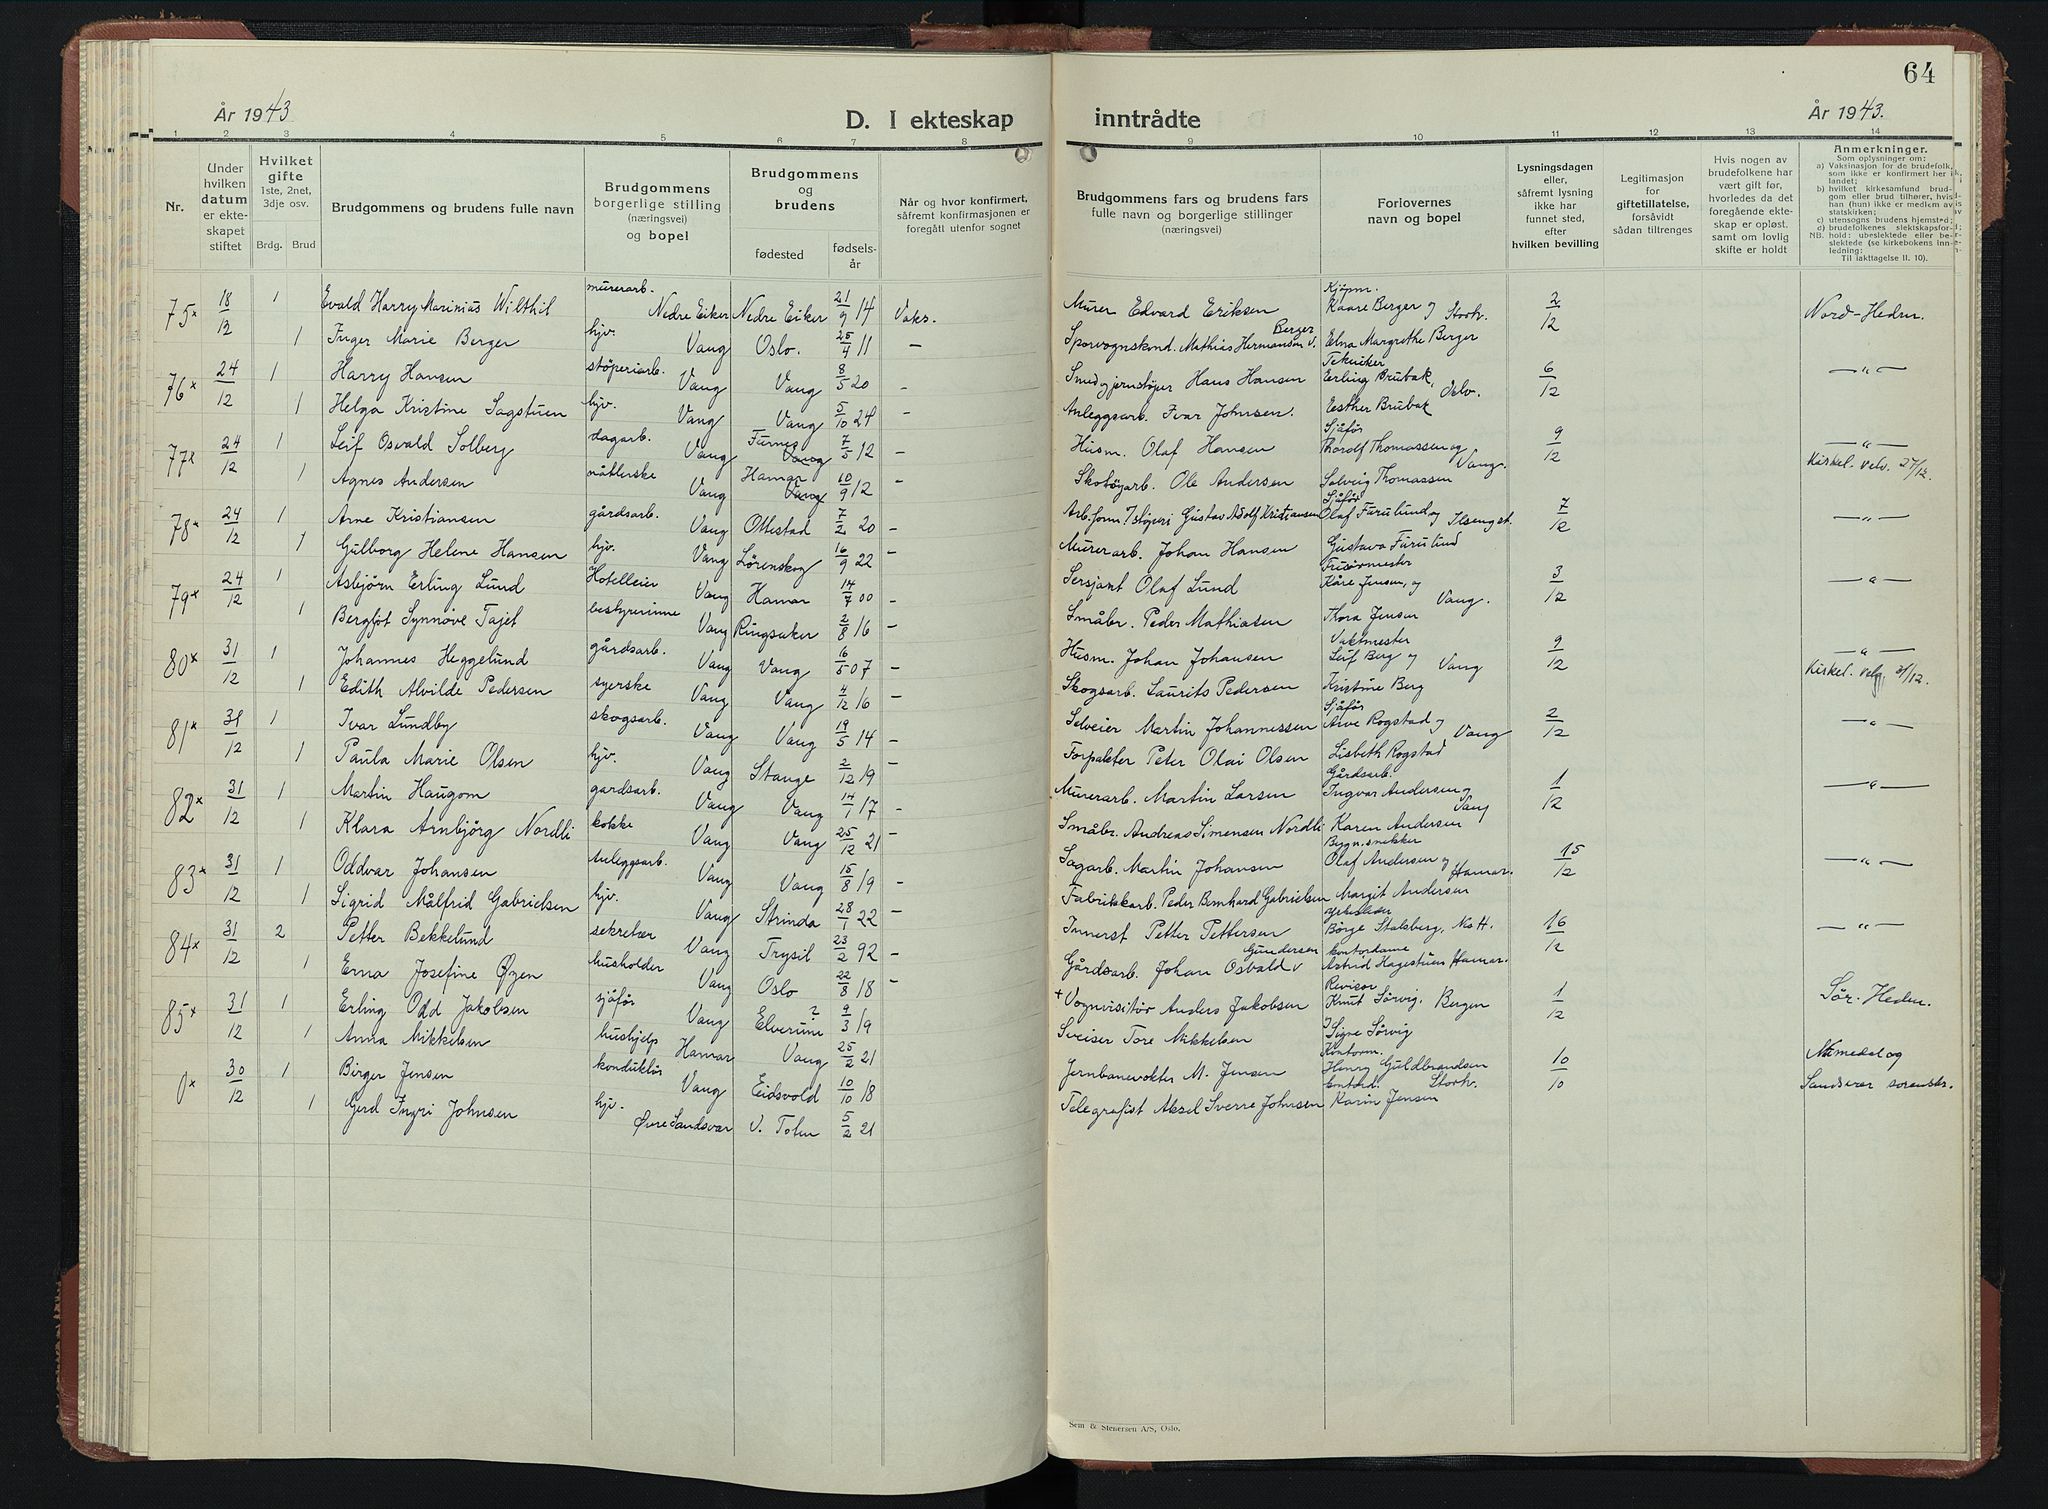 64
År 1943
D. I ekteskap
inntrådte
År 1943.
1 2 3 4 5 6 7 8 9 10 11 12 13 14
Nr.
Under hvilken datum er ekteskapet stiftet
Hvilket gifte
1ste, 2net, 3dje osv.
Brdg. Brud
Brudgommens og brudens fulle navn
Brudgommens borgerlige stilling (næringsvei) og bopel
Brudgommens og brudens
fødested
fødselsår
Når og hvor konfirmert, såfremt konfirmasjonen er foregått utenfor sognet
Brudgommens fars og brudens fars fulle navn og borgerlige stillinger (næringsvei)
Forlovernes navn og bopel
Lysningsdagen eller, såfremt lysning ikke har funnet sted, efter hvilken bevilling
Legitimasjon for giftetillatelse, forsåvidt sådan tiltrenges
Hvis nogen av brudefolkene har vært gift før, hvorledes da det foregående ekteskap er opløst, samt om lovlig skifte er holdt
Anmerkninger.
Som oplysninger om:
a) Vaksinasjon for de brudefolk, som ikke er konfirmert her i landet;
b) hvilket kirkesamfund brudgom eller brud tilhører, hvis han (hun) ikke er medlem av statskirken;
c) utensogns brudens hjemsted;
d) brudefolkenes slektskapsforhold: ubeslektede eller beslektede (se kirkebokens innledning:
NB.
Til iakttagelse II. 10).
75x 18/12 1 Evald Harry Marinius Wilthil murerarb. Nedre Eiker Nedre Eiker 21/9 14 Vaks. Murer Edvard Eriksen Kjøpm. Kaare Berger og Storh. 2/12 Nord-Hedm.
1 Inger Marie Berger hjv. Vang Oslo. 25/4 11 — Sporvognskond. Mathias Hermansen v. Berger Edna Margrethe Berger
76x 24/12 1 Harry Hansen støperiarb. Vang Vang 8/5 20 — Smed gjernstøper Hans Hansen Tekniker Erling Brubak, Oslo. 6/12 —"—
1 Helga Kristine Sagstuen hjv. Vang Vang 5/10 24 — Anleggsarb. Ivar Johnsen. Esther Brubak
77x 24/12 1 Leif Osvald Solberg dagarb. Vang Furnes Vang 7/5 12 — Husm. Olaf Hansen Sjåfør Thorolf Thomassen og Vang. 9/12 —"—
1 Agnes Andersen nåtlerske Vang Hamar Vang 10/9 12 — Skotøyarb. Ole Andersen Solveig Thomassen Kirkel. velv. 27/12.
78x 24/12 1 Arne Kristiansen gårdsarb. Vang Ottestad 7/2 20 — Arb.form. i støperi Gustav Adolf Kristiansen Sjåfør Olaf Furulund og Ilsengst. 7/12 —"—
1 Gulborg Helene Hansen hjv. Vang Lørenskog 16/9 22 — Murerarb. Johan Hansen Gustava Furulund
79x 24/12 1 Asbjørn Erling Lund Hotelleier Vang Hamar 14/7 00 — Sersjant Olaf Lund Frisørmester Kåre Jensen, og Vang. 3/12 —"—
1 Bergljot Synnøve Tajet bestyrerinne Vang Ringsaker 2/8 16 — Småbr. Peder Mathiasen Thora Jensen
80x 31/12 1 Johannes Heggelund gårdsarb. Vang Vang 16/5 07 — Husm. Johan Johansen Vaktmester Leif Berg og Vang 9/12 —"—
1 Edith Alvilde Pedersen syerske Vang Vang 4/12 16 — Skogsarb. Laurits Pedersen Kristine Berg Kirkel. velg. 31/12.
81x 31/12 1 Ivar Lundby skogsarb. Vang Vang 19/5 14 — Selveier Martin Johannessen Sjåfør Arve Rogstad og Vang 2/12 —"—
1 Paula Marie Olsen hjv. Vang Stange 2/12 19 — Forpakter Peter Olai Olsen Lisbeth Rogstad
82x 31/12 1 Martin Haugom gardsarb. Vang Vang 14/1 17 — Murerarb. Martin Larsen Gårdsarb. Ingvar Andersen og Vang 1/12 —"—
1 Klara Arnbjørg Nordli kokke Vang Vang 25/12 21 — Småbr. Andreas Simensen Nordli Karen Andersen
83x 31/12 1 Oddvar Johansen anleggsarb. Vang Vang 15/8 19 — Sagarb. Martin Johansen Bygn.snekker Olaf Andersen og Hamar. 15/12 —"—
1 Sigrid Målfrid Gabrielsen hjv. Vang Strinda 28/1 22 — Fabrikkarb. Peder Bernhard Gabrielsen Margit Andersen
84x 31/12 2 Petter Bekkelund sekretær Vang Trysil 23/2 92 — Innerst Petter Pettersen Børge Stalsberg, No H. 16/12 —"—
1 Erna Josefine Øyen husholder Vang Oslo 22/8 18 — Gårdsarb. Johan Osvald v Gundersen kontordame Astrid Hagestuen Hamar.
85x 31/12 1 Erling Odd Jakobsen sjåfør Vang Elverum ? 9/3 19 +Vognvisitør Anders Jakobsen Revisor Knut Sørvig. Bergen 1/12 Sør-Hedm.
1 Anna Mikkelsen hushjelp Hamar Vang 25/2 21 Sveiser Tore Mikkelsen Signe Sørvig
0x 30/12 1 Birger Jensen konduktør Vang Eidsvold 10/10 18 Jernbanevokter M. Jensen Kontorm. Henry Guldbrandsen Storh. 10/10 Numedal og
1 Gerd Ingri Johnsen hjv. Øvre Sandsvær V. Toten 5/2 21 Telegrafist Aksel Sverre Johnsen Karin Jensen Sandsvær sorenskr.
Sem & Stenersen A/S, Oslo.